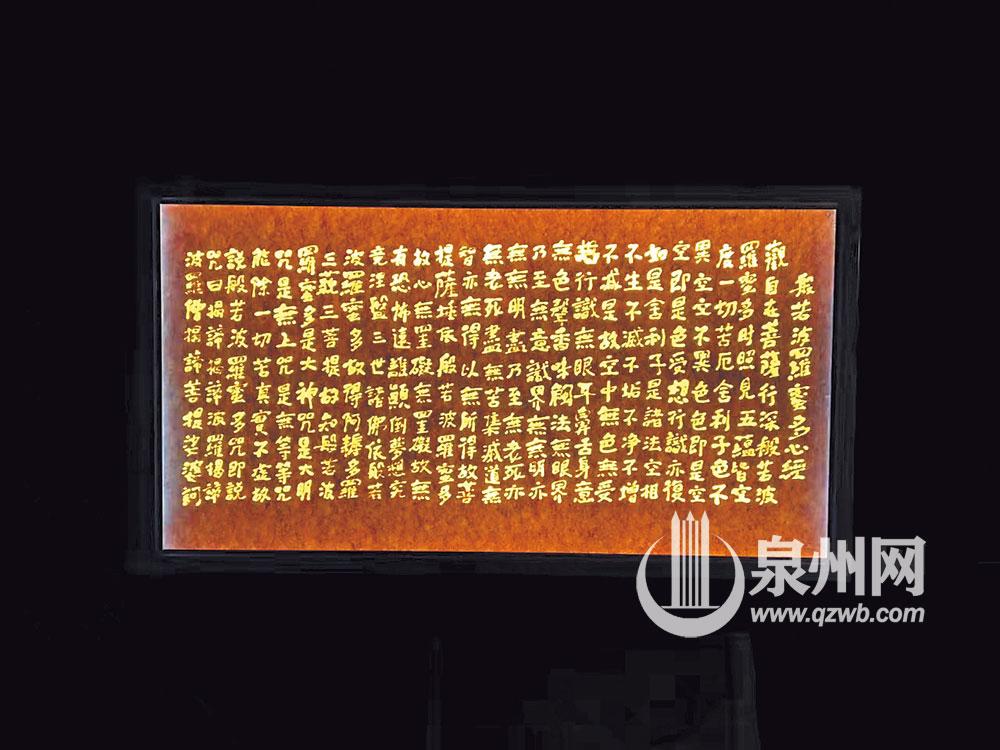 般若波羅蜜多心經
觀自在菩薩行深般若波
羅蜜多時照見五蘊皆空
度一切苦厄舍利子色不
異空空不異色色即是空
空即是色受想行識亦復
如是舍利子是諸法空相
不生不滅不垢不净不增
不減是故空中無色無受
想行識無眼耳鼻舌身意
無色聲香味觸法無眼界
乃至無意識界無無明亦
無無明盡乃至無老死亦
無老死盡無苦集滅道無
智亦無得以無所得故菩
提薩埵依般若波羅蜜多
故心無罣礙無罣礙故無
有恐怖遠離顛倒夢想究
竟涅盤三世諸佛依般若
波羅蜜多故得阿耨多羅
三藐三菩提故知般若波
羅蜜多是大神咒是大明
咒是無上咒是無等等咒
能除一切苦真實不虛故
說般若波羅蜜多咒即說
咒曰揭諦揭諦波羅揭諦
波羅僧揭諦菩提娑婆訶
泉州网
www.qzwb.com